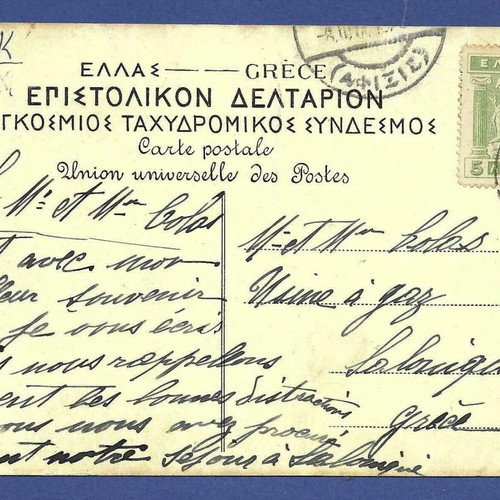 K
-8.
(ΑΦΙΞΙΣ)
ΕΛΛ
5
ΕΛΛΑΣ —— GRÈCE
ΕΠΙΣΤΟΛΙΚΟΝ ΔΕΛΤΑΡΙΟΝ
ΓΚΟΣΜΙΟΣ ΤΑΧΥΔΡΟΜΙΚΟΣ ΣΥΝΔΕΣΜΟΣ
Carte postale
Union universelle des Postes
Mr et Mme Colas
avec mon
souvenir
je vous écris
nous rappellons
les bonnes distractions
nous avez procuré
notre séjour à Salonique
Mr et Mme Colas
Usine à gaz
Saloniqu
Grèce